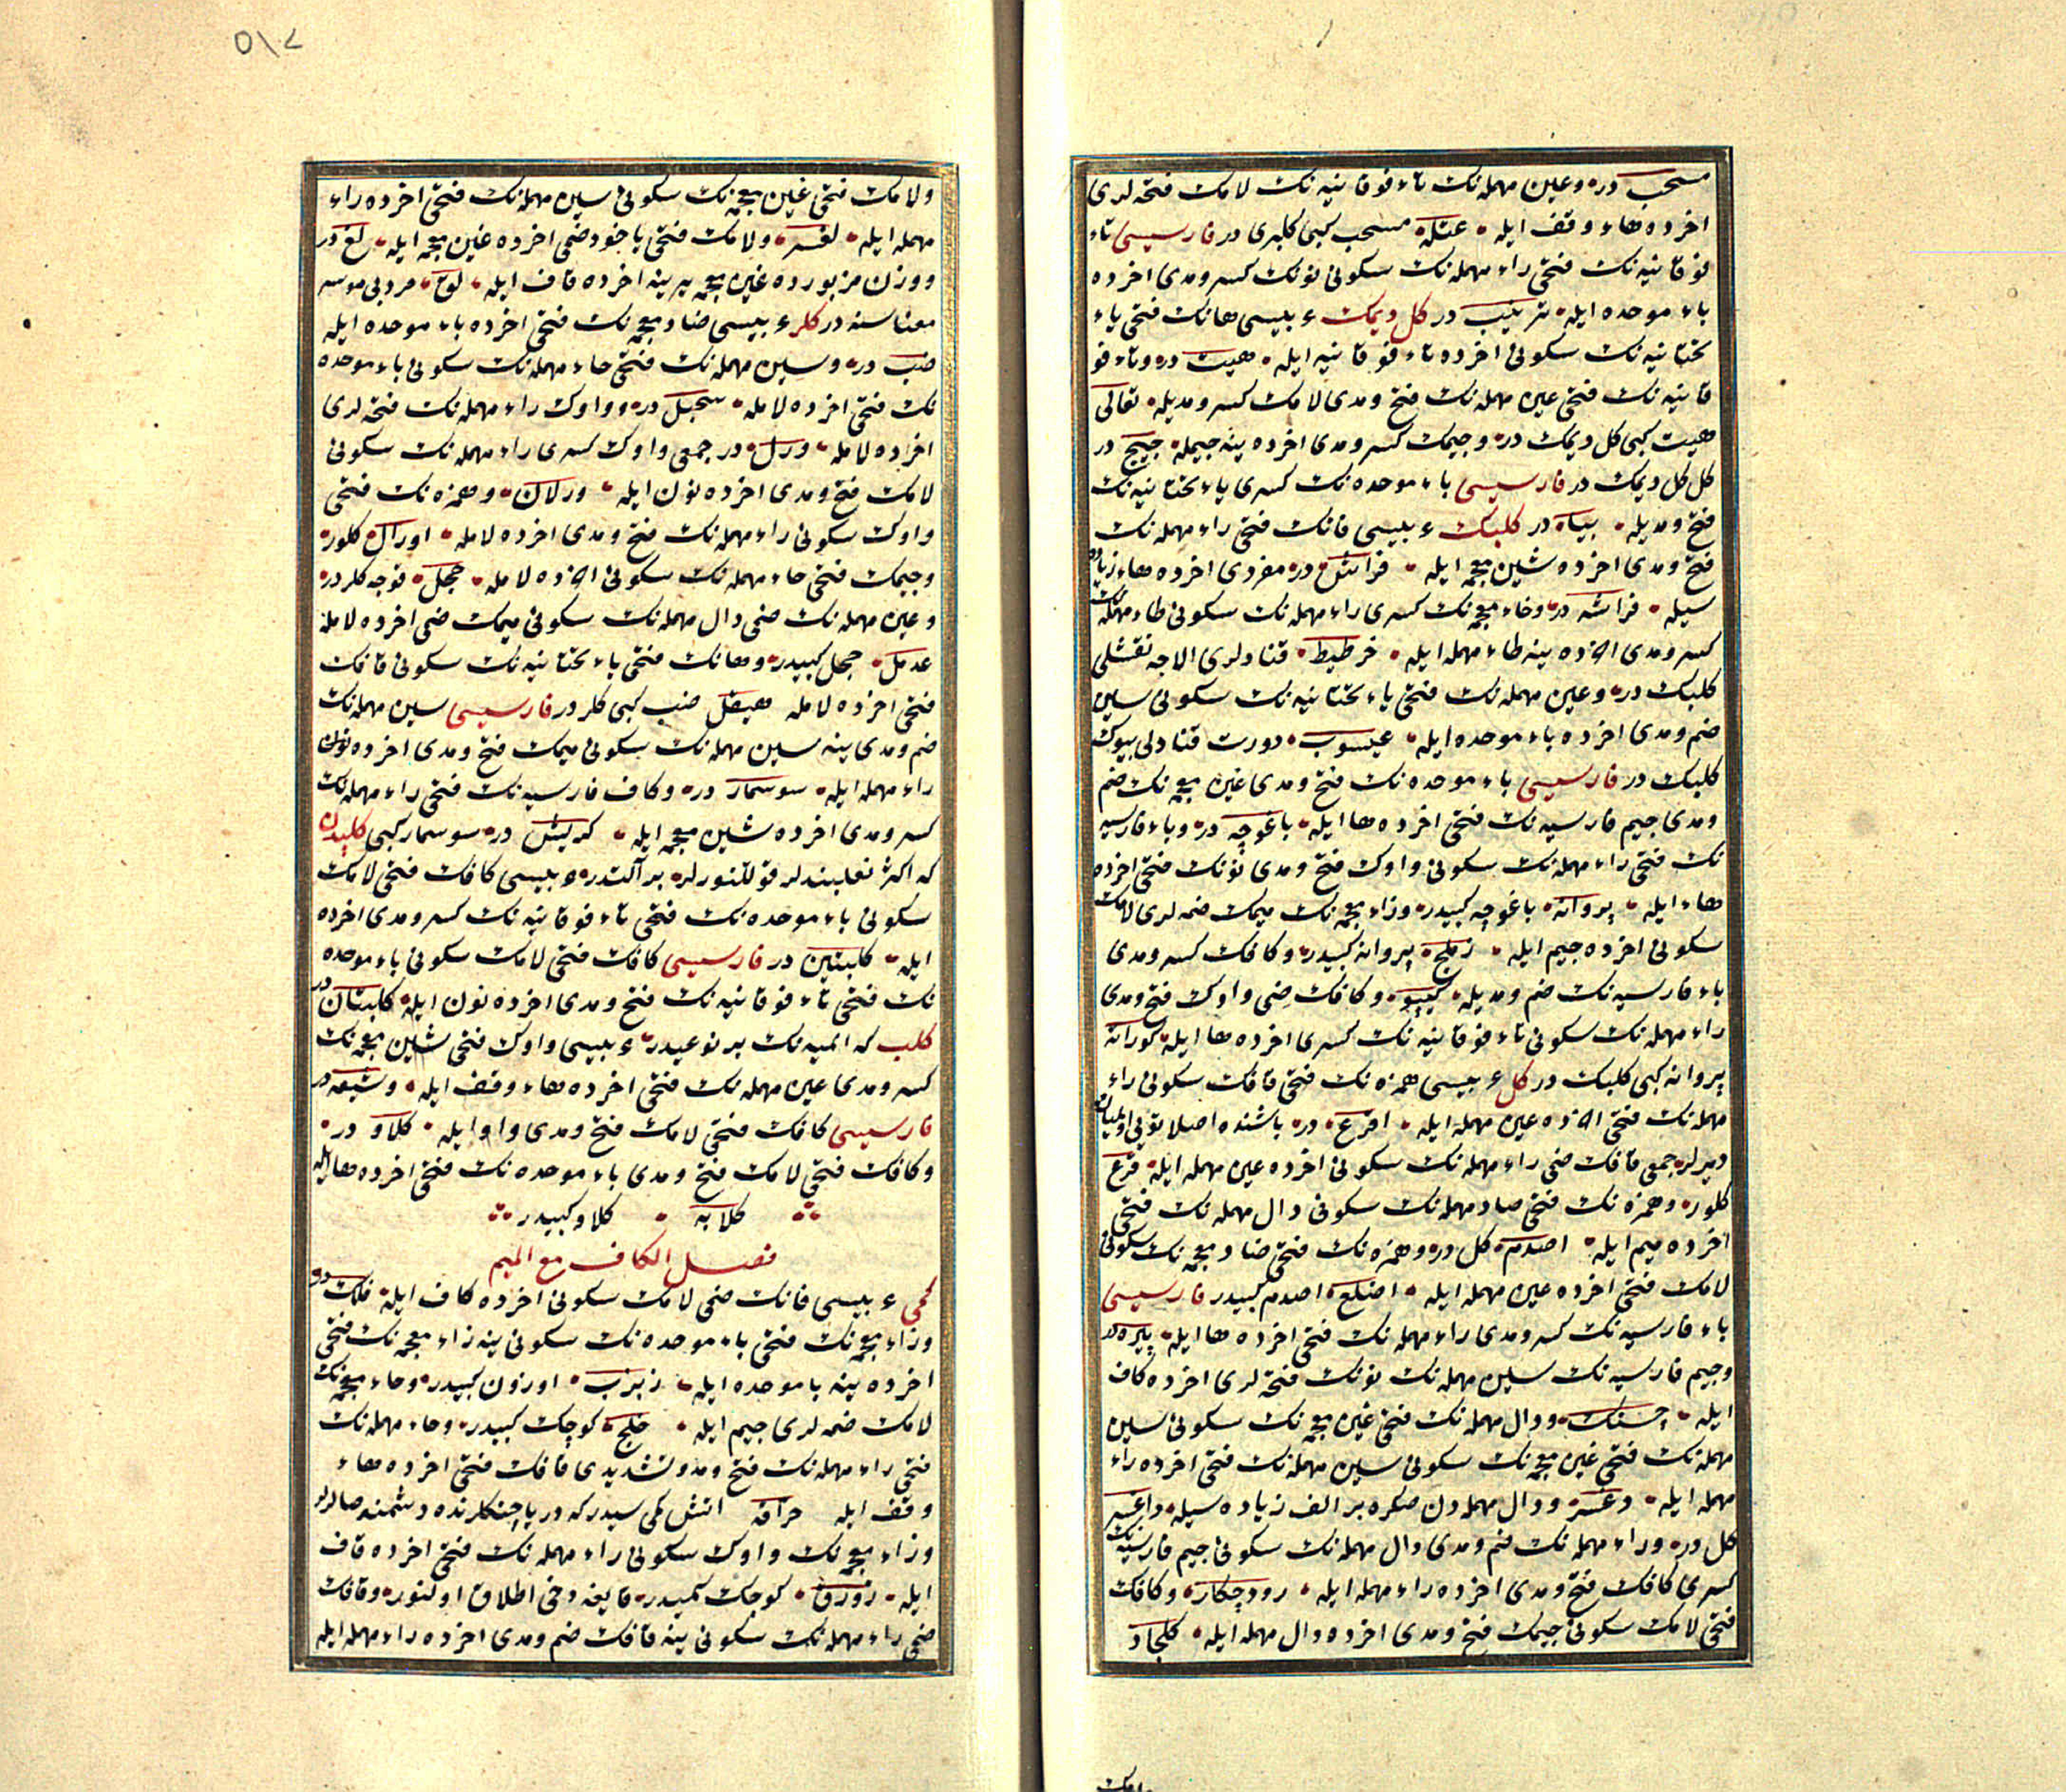 مسحب در وعین مهمله نک تاء فوقانیه نک لامک فتحه لری
اخرده هاء وقف ایله عتله مسحب کبی کلبری در فارسیسی تاء
فوقانیه نک فتحی راء مهمله نک سکونی نونک کسر ومدی اخرده
باء موحده ایله ترنیب در کل دیمک ء بیسی هانک فتحی یاء
تحتانیه نک سکونی اخرده تاء فوقانیه ایله هیت در وتاء فو
قانیه نک فتحی عین مهمله نک فتح ومدی لامک کسر ومدیله تعالی
هیت کبی کل دیمک در وجیمک کسر ومدی اخرده ینه جیمله جیج در
کل کل دیمک در فارسیسی باء موحده نک کسری یاء تحتانیه نک
فتح ومدیله بیاه در کلبک ء بیسی فانک فتحی راء مهمله نک
فتح ومدی اخرده شین معجمه ایله فراش در مفردی اخرده هاء زیاده
سیله فراشه در وخاء معجمه نک کسری راء مهمله نک سکونی طاء مهمله نک
کسر ومدی اخرده ینه طاء مهمله ایله خرطیط قنادلری الاجه نقشلی
کلبک در وعین مهمله نک فتحی یاء تحتانیه نک سکونی سین
ضم ومدی اخرده باء موحده ایله عیسوب دورت قنادلی بیوک
کلبک در فارسیسی باء موحده نک فتح ومدی غین معجمه نک ضم
ومدی جیم فارسیه نک فتحی اخرده ها ایله باغوچه در وباء فارسیه
نک فتحی راء مهمله نک سکونی واوک فتح ومدی نونک فتحی اخرده
هاء ایله پروانه باغوچه کبیدر وزاء معجمه نک میمک ضمه لری لامک
سکونی اخرده جیم ایله زملج پروانه کبیدر وکافک کسر ومدی
باء فارسیه نک ضم ومدیله کیپو وکافک ضمی واوک فتح ومدی
راء مهمله نک سکونی تاء فوقانیه نک کسری اخرده ها ایله کوراته
پروانه کبی کلبک در کل ء بیسی همزه نک فتحی قافک سکونی راء
مهمله نک فتحی اخرده عین مهمله ایله اقرع در باشنده اصلا توی اولمیانه
دیرلر جمعی قافک ضمی راء مهمله نک سکونی اخرده عین مهمله ایله قرع
کلور وهمزه نک فتحی صاد مهمله نک سکونی دال مهمله نک فتحی
اخرده میم ایله اصدم کل در وهمزه نک فتحی ضاد معجمه نک سکونی
لامک فتحی اخرده عین مهمله ایله اضلع اصدم کبیدر فارسیسی
باء فارسیه نک کسر ومدی راء مهمله نک فتحی اخرده ها ایله پیره در
وجیم فارسیه نک سین مهمله نک نونک فتحه لری اخرده کاف
ایله چسنک ودال مهمله نک فتحی غین معجمه نک سکونی سین
مهمله نک فتحی غین معجمه نک سکونی سین مهمله نک فتحی اخرده راء
مهمله ایله دغسر ودال مهمله دن صکره بر الف زیاده سیله داغسر
کل در وراء مهمله نک ضم ومدی دال مهمله نک سکونی جیم فارسیه نک
کسری کافک فتح ومدی اخرده راء مهمله ایله رودچکار وکافک
فتحی لامک سکونی جیمک فتح ومدی اخرده دال مهمله ایله کلجاد
ولامک
ولامک فتحی غین معجمه نک سکونی سین مهمله نک فتحی اخرده راء
مهمله ایله لغسر ولامک فتحی یاخود ضمی اخرده غین معجمه ایله لغ در
ووزن مزبورده غین معجمه یرینه اخرده قاف ایله لوق
معناسنه در کلر ء بیسی ضاد معجمه نک فتحی اخرده باء موحده ایله
ضب در وسین مهمله نک فتحی حاء مهمله نک سکونی باء موحده
نک فتحی اخرده لامله سحبل در وواوک راء مهمله نک فتحه لری
اخرده لامله ورل در جمعی واوک کسری راء مهمله نک سکونی
لامک فتح ومدی اخرده نون ایله ورلان وهمزه نک فتحی
واوک سکونی راء مهمله نک فتح ومدی اخرده لامله اورال کلور
وجیمک فتحی حاء مهمله نک سکونی اخرده لامله جحل قوجه کلردر
وعین مهمله نک ضمی دال مهمله نک سکونی میمک ضمی اخرده لامله
عدمل جحل کبیدر وهانک فتحی یاء تحتانیه نک سکونی قافک
فتحی اخرده لامله هیقل ضب کبی کلر در فارسیسی سین مهمله نک
ضم ومدی ینه سین مهمله نک سکونی میمک فتح ومدی اخرده
راء مهمله ایله سوسمار در وکاف فارسیه نک فتحی راء مهمله نک
کسر ومدی اخرده شین معجمه ایله کریش در سوسمار کبی کلبدان
که اکثر نعلبندلر قوللنورلر بر آلتدر ء بیسی کافک فتحی لامک
سکونی باء موحده نک فتحی تاء فوقانیه نک کسر ومدی اخرده نون
ایله کلبتین در فارسیسی کافک فتحی لامک سکونی باء موحده
نک فتحی تاء فوقانیه نک فتح ومدی اخرده نون ایله کلبتان در
کلب که اتمیه نک بر نوعیدر ء بیسی واوک فتحی شین معجمه نک
کسر ومدی عین مهمله نک فتحی اخرده هاء وقف ایله وشیعه در
فارسیسی کافک فتحی لامک فتح ومدی واو ایله کلاو در
وکافک فتحی لامک فتح ومدی باء موحده نک فتحی اخرده ها ایله
کلابه کلاو کبیدر
فصل الکاف مع المیم
کمی ء بیسی فانک ضمی لامک سکونی اخرده کاف ایله فلک در
وزاء معجمه نک فتحی باء موحده نک سکونی ینه زاء معجمه نک فتحی
اخرده ینه باء موحده ایله زبزب اوزون کمیدر وخاء معجمه نک
لامک ضمه لری جیم ایله خلج کوچک کمیدر وحاء مهمله نک
فتحی راء مهمله نک فتح ومد وتشدیدی قافک فتحی اخرده هاء
وقف ایله حراقه اتش کمی سیدر که دریا جنکلرنده دشمنه صالرلر
وزاء معجمه نک واوک سکونی راء مهمله نک فتحی اخرده قاف
ایله زورق کوچک کمیدر قایغه دخی اطلاق اولنور وقافک
ضمی راء مهمله نک سکونی ینه قافک ضم ومدی اخرده راء مهمله ایله